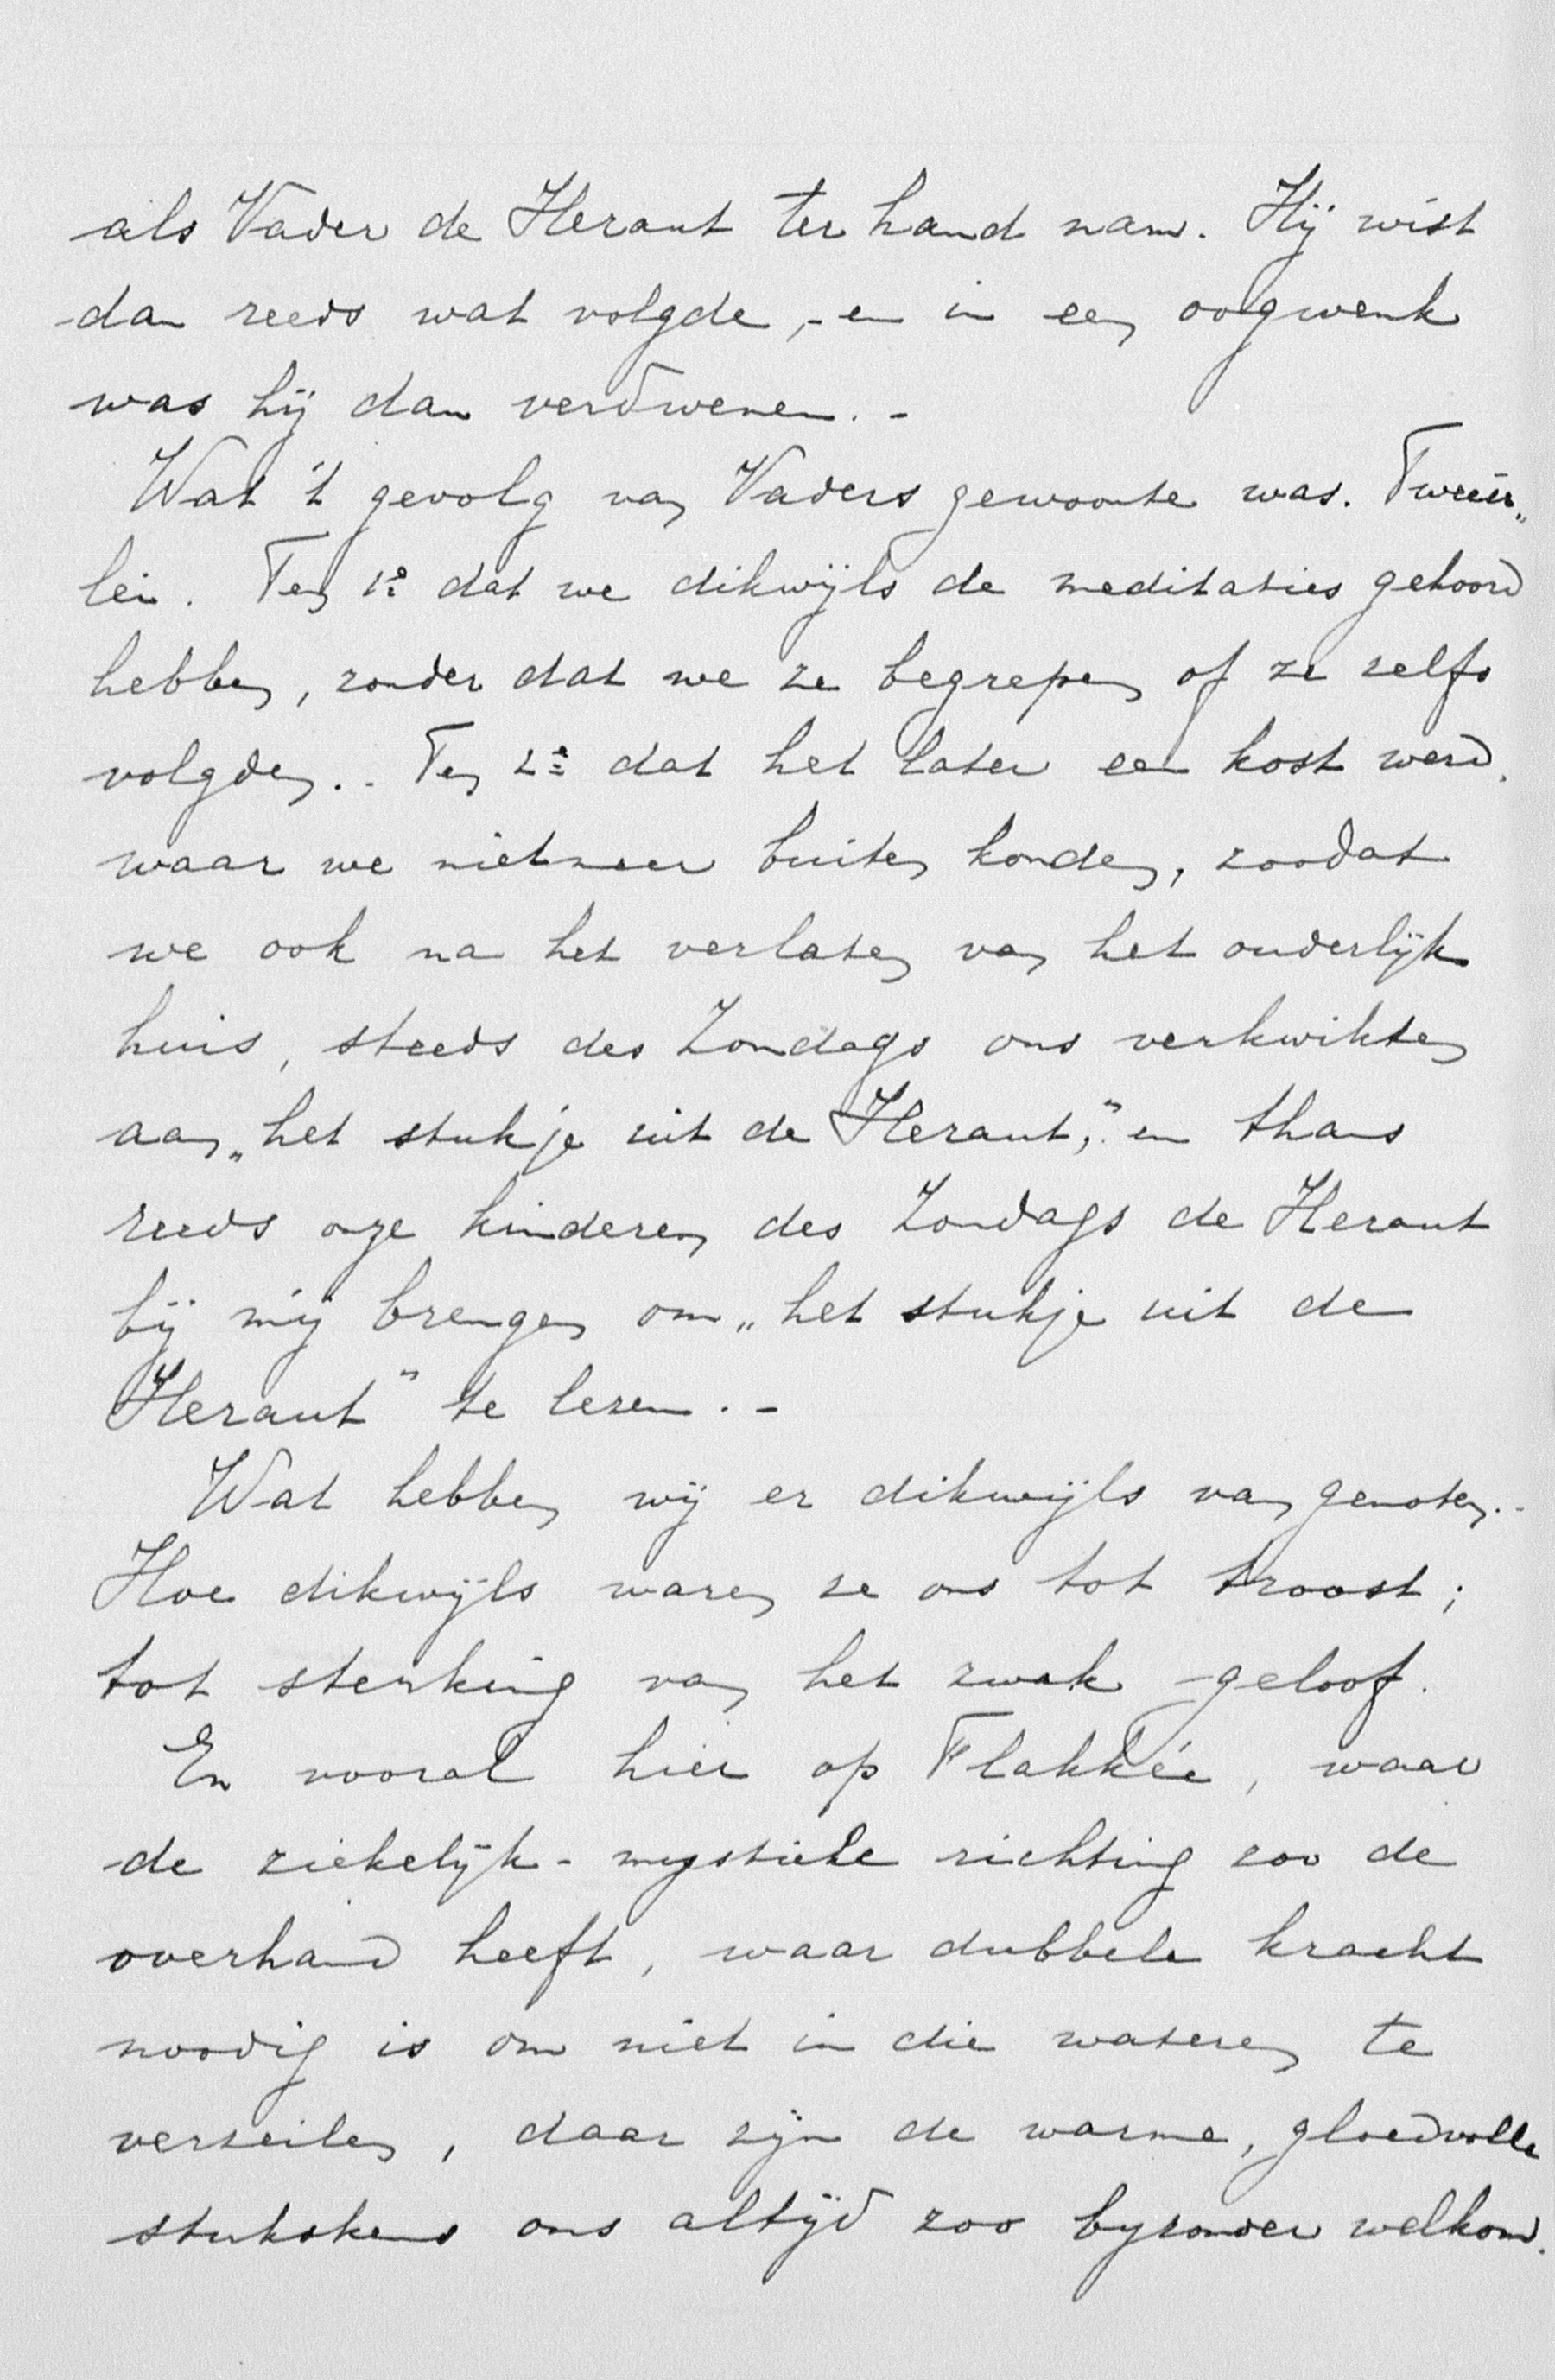 als Vader de Heraut ter hand nam. Hij wist
dan reeds wat volgde, - en in een oogwenk
was hij dan verdwenen. -
Wat 't gevolg van Vaders gewoonte was. Tweeër„
lei. Ten 1e dat we dikwijls de meditaties gehoord
hebben, zonder dat we ze begrepen of ze zelfs
volgden. - Ten 2e dat het later een kost werd,
waar we niet meer buiten konden, zoodat
we ook na het verlaten van het ouderlijk
huis, steeds des Zondags ons verkwikten
aan „het stukje uit de Heraut," en thans
reeds onze kinderen des Zondags de Heraut
bij mij brengen om „het stukje uit de
Heraut" te lezen. -
Wat hebben wij er dikwijls van genoten. -
Hoe dikwijls waren ze ons tot troost;
tot sterking van het zwak geloof.
En vooral hier op Flakkée, waar
de ziekelijk - mystieke richting zoo de
overhand heeft, waar dubbele kracht
noodig is om niet in die wateren te
verzeilen, daar zijn de warme, gloedvolle
stukskens ons altijd zoo byzonder welkom.